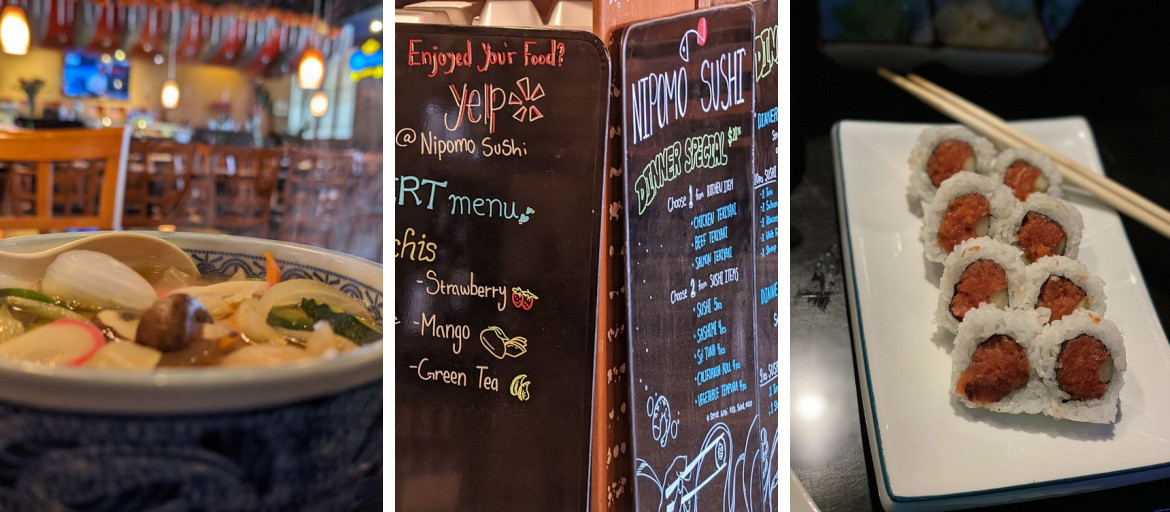 Enjoyed Your Food?
yelp
@ Nipomo Sushi
ERT menu
chis
-Strawberry
-Mango
-Green Tea
NIPOMO SUSHI
DINNER SPECIAL
Choose 1 from KITCHEN ITEM
• CHICKEN TERIYAKI
• BEEF TERIYAKI
• SALMON TERIYAKI
Choose 2 from SUSHI ITEMS
• SUSHI 5PCS
• SASHIMI 4PCS
• CALIFORNIA ROLL 4PCS
• VEGETABLE TEMPURA 4PCS
DIN
DINNER